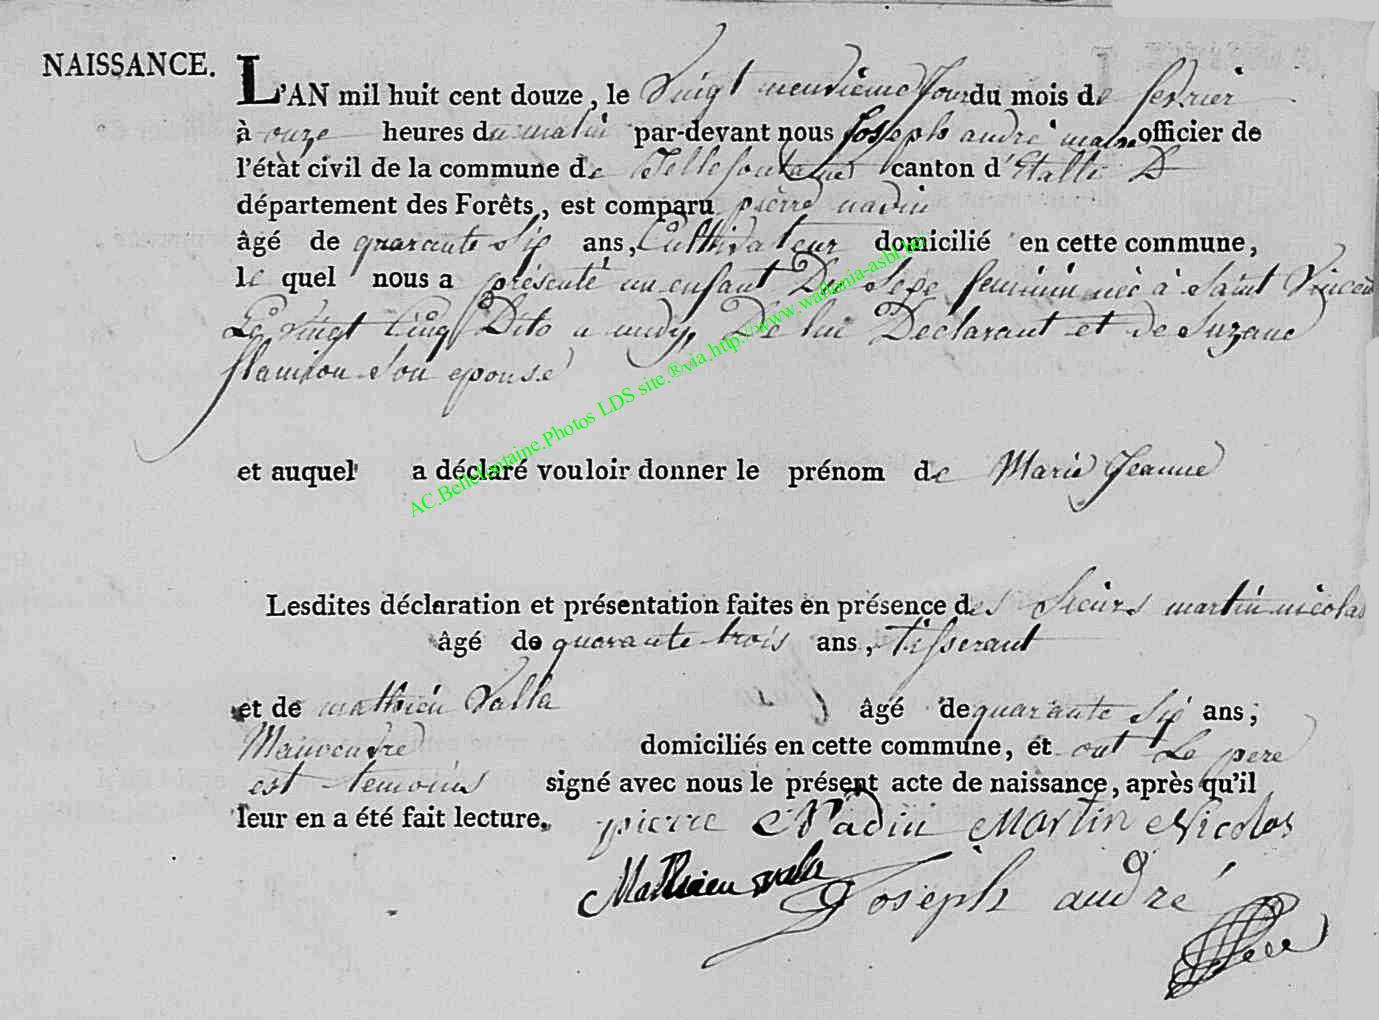 NAISSANCE.
L'AN mil huit cent douze, le Vingt neuvieme Jour du mois de fevrier
à onze heures du matin par-devant nous Joseph andré maire officier de
l'état civil de la commune de Bellefontaine canton d'Etalle D
département des Forêts, est comparu pierre nadin
âgé de quarante Six ans, Cultivateur domicilié en cette commune,
le quel nous a présenté un enfant Du Sexe feminin née à Saint Vincent
Le Vingt Cinq Dito a midy, De lui Declarant et de Suzane
flamion Son epouse
et auquel a déclaré vouloir donner le prénom de Marie Jeanne
Lesdites déclaration et présentation faites en présence des Sieurs martin nicolas
âgé de quarante trois ans, tisserant
et de mathieu Valla âgé de quarante Six ans,
Manoeuvre domiciliés en cette commune, et ont Le pere
est temoins signé avec nous le présent acte de naissance, après qu'il
leur en a été fait lecture. pierre Nadin Martin Nicolas
Mathieu vala Joseph andré
AC.Bellefontaine.Photos LDS site.®via.http://www.wallonia-asbl.be/